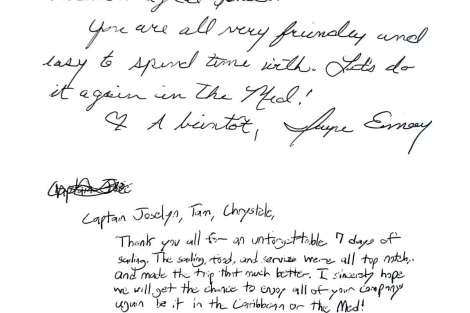 You are all very friendly and
easy to spend time with. Let's do
it again in the Med!
A bientot,
Captain Joselyn, Tam, Chrystele,
Thank you all for an unforgettable 7 days of
sailing. The sailing, food, and service were all top notch,
and made the trip that much better. I sincerely hope
we will get the chance to enjoy all of your company
again be it in the Caribbean or the Med!